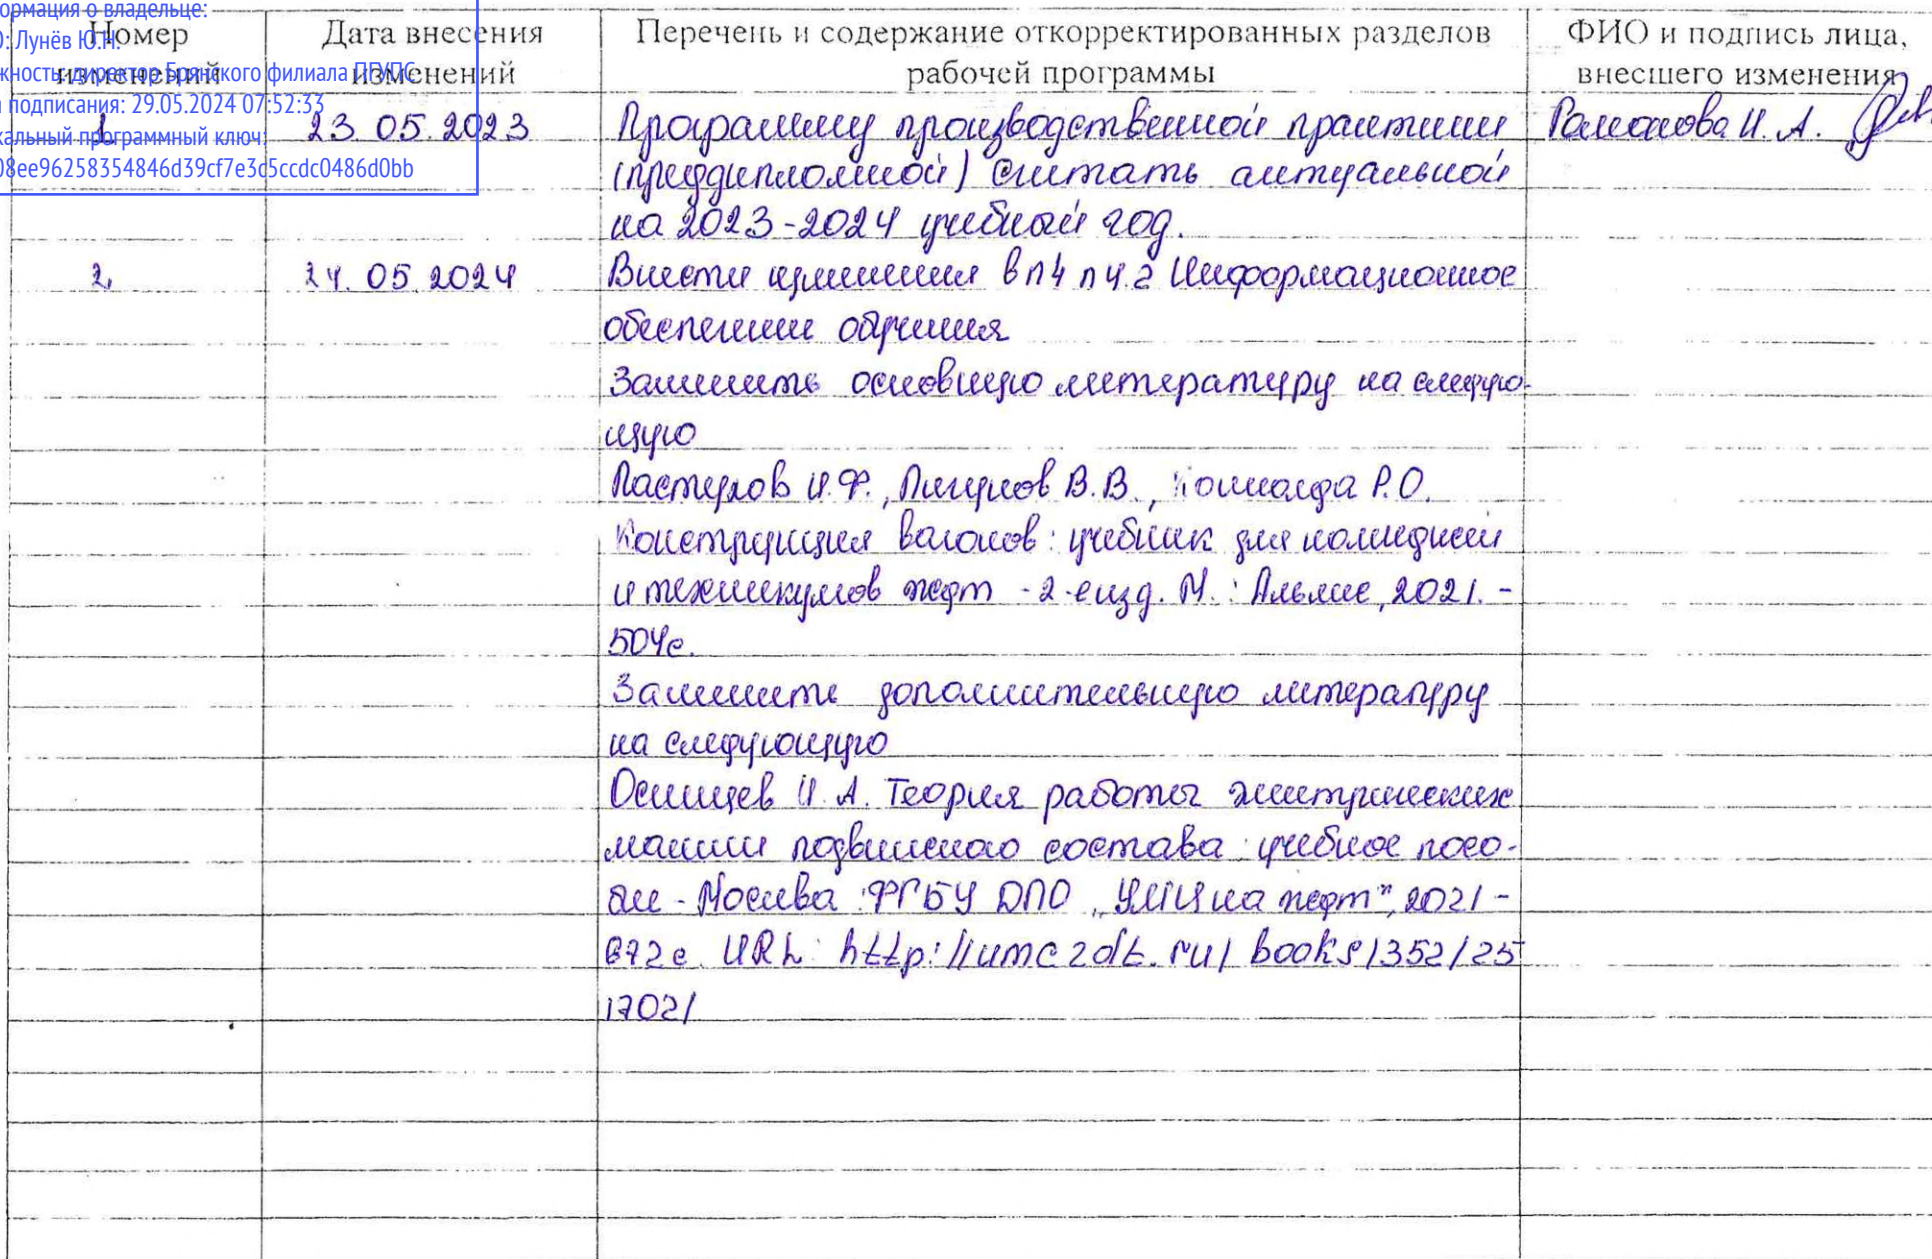 ормация о владельце:
О: Лунёв Ю.Н.
жность: директор Брянского филиала ПГУПС
а подписания: 29.05.2024 07:52:33
кальный программный ключ:
08ee96258354846d39cf7e3c5ccdc0486d0bb
Номер изменений
Дата внесения изменений
Перечень и содержание откорректированных разделов рабочей программы
ФИО и подпись лица, внесшего изменения
1. 23.05.2023 Программу производственной практики Романова И.А.
(преддипломной) считать актуальной
на 2023-2024 учебный год.
2. 24.05.2024 Внести изменения в п4 п 4.2 Информационное
обеспечение обучения
Заменить основную литературу на следую-
щую
Пастухов И.Ф., Пигунов В.В., Кошкалда Р.О.
Конструкция вагонов: учебник для колледжей
и техникумов ждт - 2-е изд. М.: Альянс, 2021. -
504с.
Заменить дополнительную литературу
на следующую
Осинцев И.А. Теория работы электрических
машин подвижного состава: учебное посо-
бие - Москва: ФГБУ ДПО „УМЦ на ждт", 2021 -
672с. URL: http://umczdt.ru/books/352/25
1702/